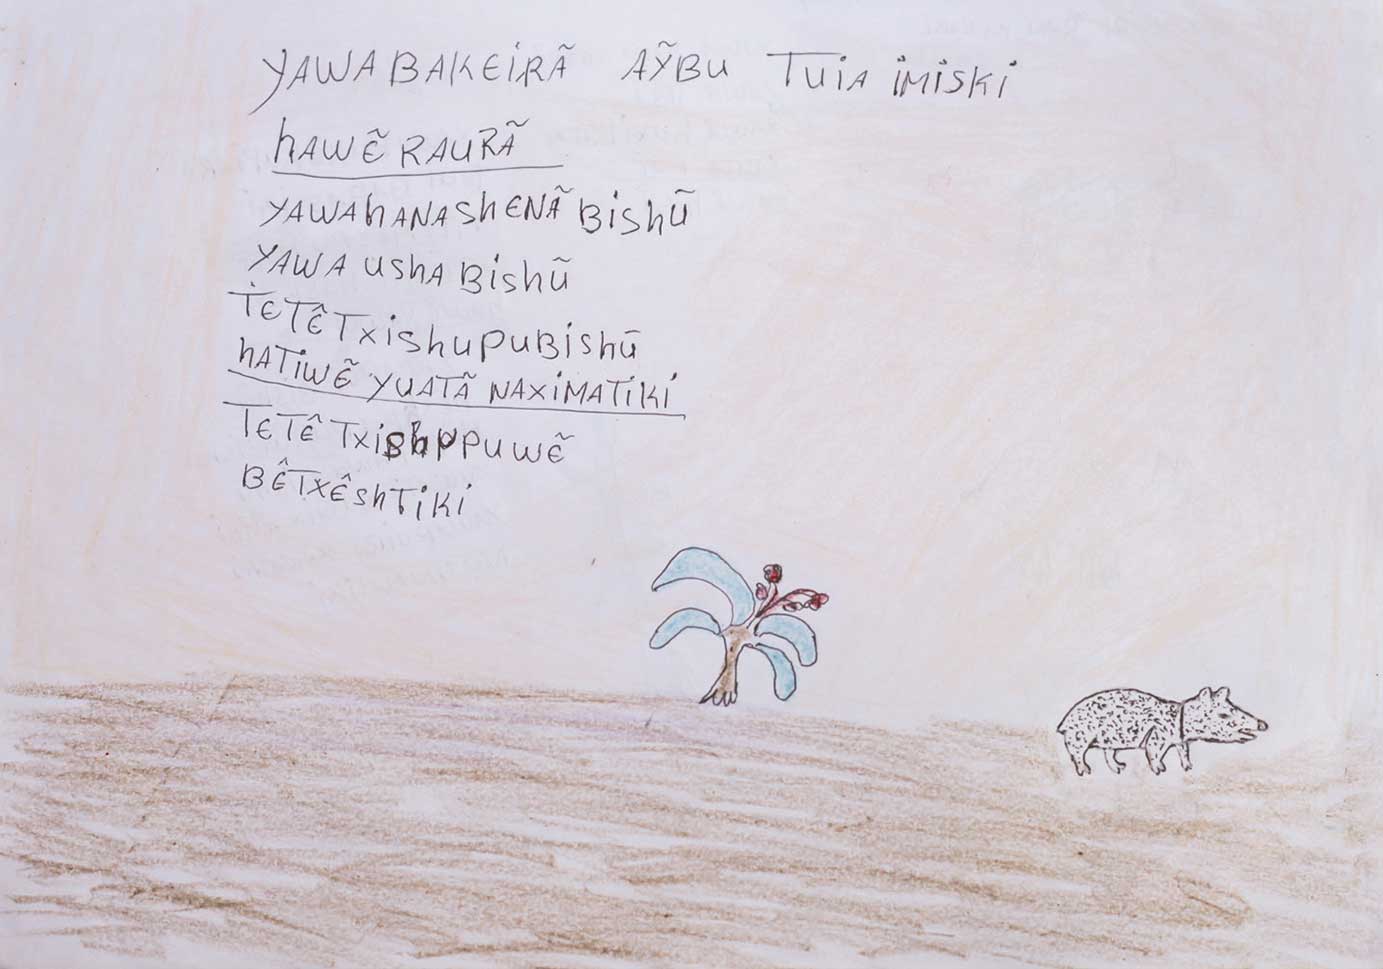 YAWA BAKEIRÃ AỸBU TUIA iMiSKi
hAWẼ RAURÃ
YAWA hANA ShENÃ BiShŨ
YAWA UShA BiShŨ
TETÊ TXiShUPUBiShŨ
hATiWẼ YUATÃ NAXiMATiKi
TETÊ TXiShPPUWẼ
BÊTXÊShTiKi